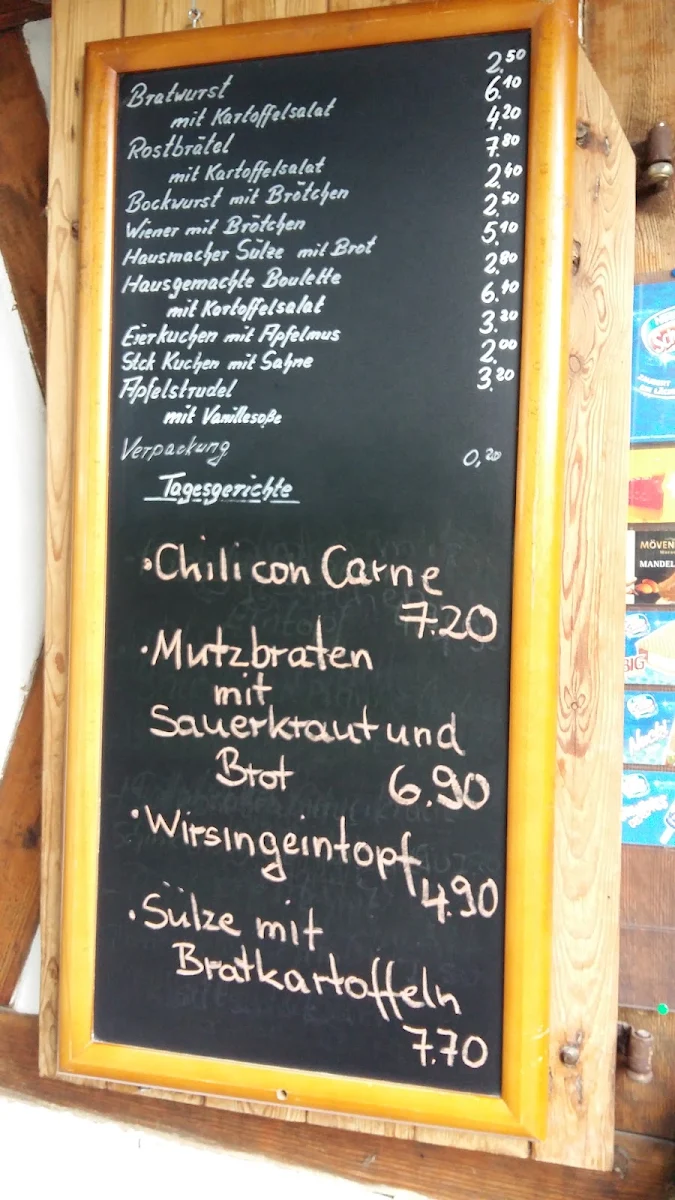 Bratwurst 2.50
mit Kartoffelsalat 6.10
Rostbrätel 4.20
mit Kartoffelsalat 7.80
Bockwurst mit Brötchen 2.40
Wiener mit Brötchen 2.50
Hausmacher Sülze mit Brot 5.10
Hausgemachte Boulette 2.80
mit Kartoffelsalat 6.40
Eierkuchen mit Apfelmus 3.20
Stck Kuchen mit Sahne 2.00
Apfelstrudel 3.20
mit Vanillesoße
Verpackung 0,20
Tagesgerichte
·Chili con Carne
7.20
·Mutzbraten
mit
Sauerkraut und
Brot 6.90
·Wirsingeintopf
4.90
·Sülze mit
Bratkartoffeln
7.70
MÖVEN
MANDEL
BIG